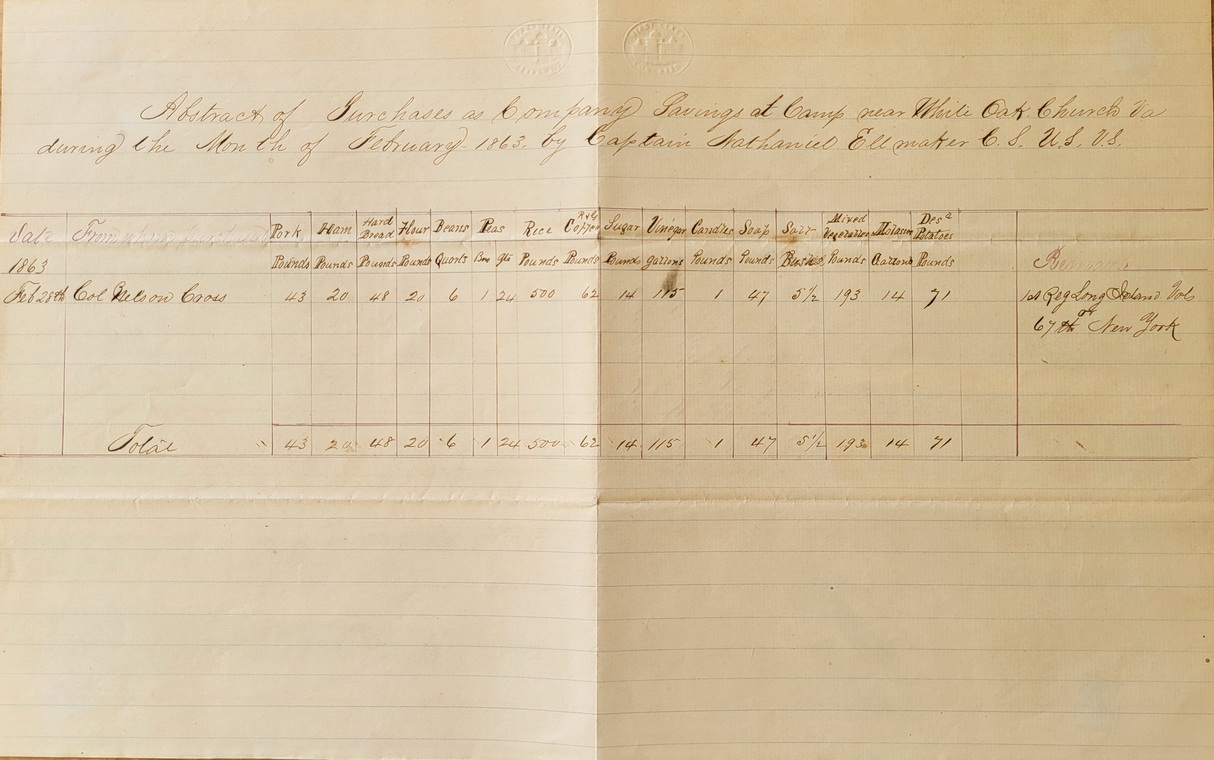 Abstract of Purchases as Company Savings at Camp near White Oak Church Va
during the Month of February 1863. by Captain Nathaniel Ellmaker C. S. U.S. V.S.
Date From Pork Ham Hard Bread Flour Beans Peas Rice R & G Coffee Sugar Vinegar Candles Soap Salt Mixed Vegetables Molasses Des^d Potatoes
1863 Pounds Pounds Pounds Pounds Quarts Bus Qts Pounds Pounds Pounds Gallons Pounds Pounds Pounds Gallons Pounds
Feb 28th Col Nelson Cross 43 20 48 20 6 1 24 500 62 14 115 1 47 5½ 193 14 71 1st Reg Long Island Vols
or
67th New York
Total 43 20 48 20 6 1 24 500 62 14 115 1 47 5½ 193 14 71